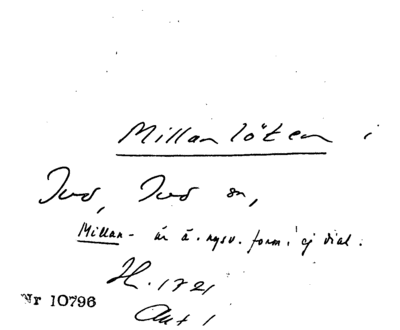 Millanlöten i
Tud, Tud sn,
Millan- är ä. nysv. form! ej dial.
H. 1721
Nr 10796
Akt 1